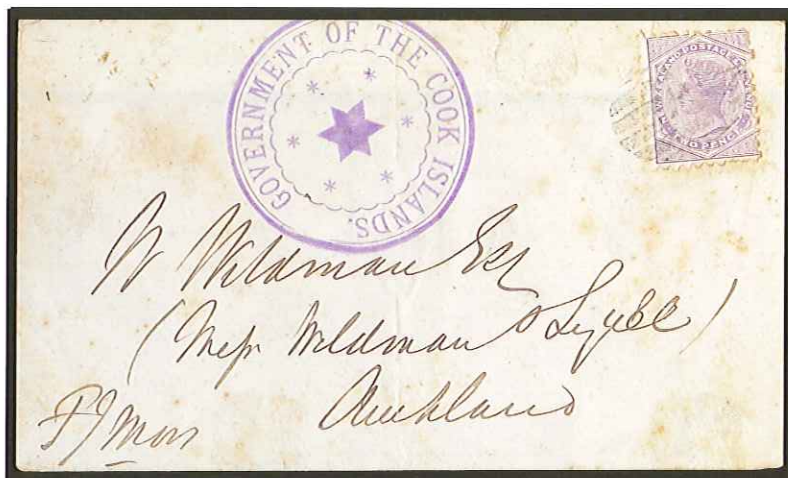 GOVERNMENT OF THE COOK ISLANDS.
NEW ZEALAND POSTAGE & REVENUE
TWO PENCE
W Wildman Esq
(Messrs Wildman & Lyell)
Auckland
F J Moss